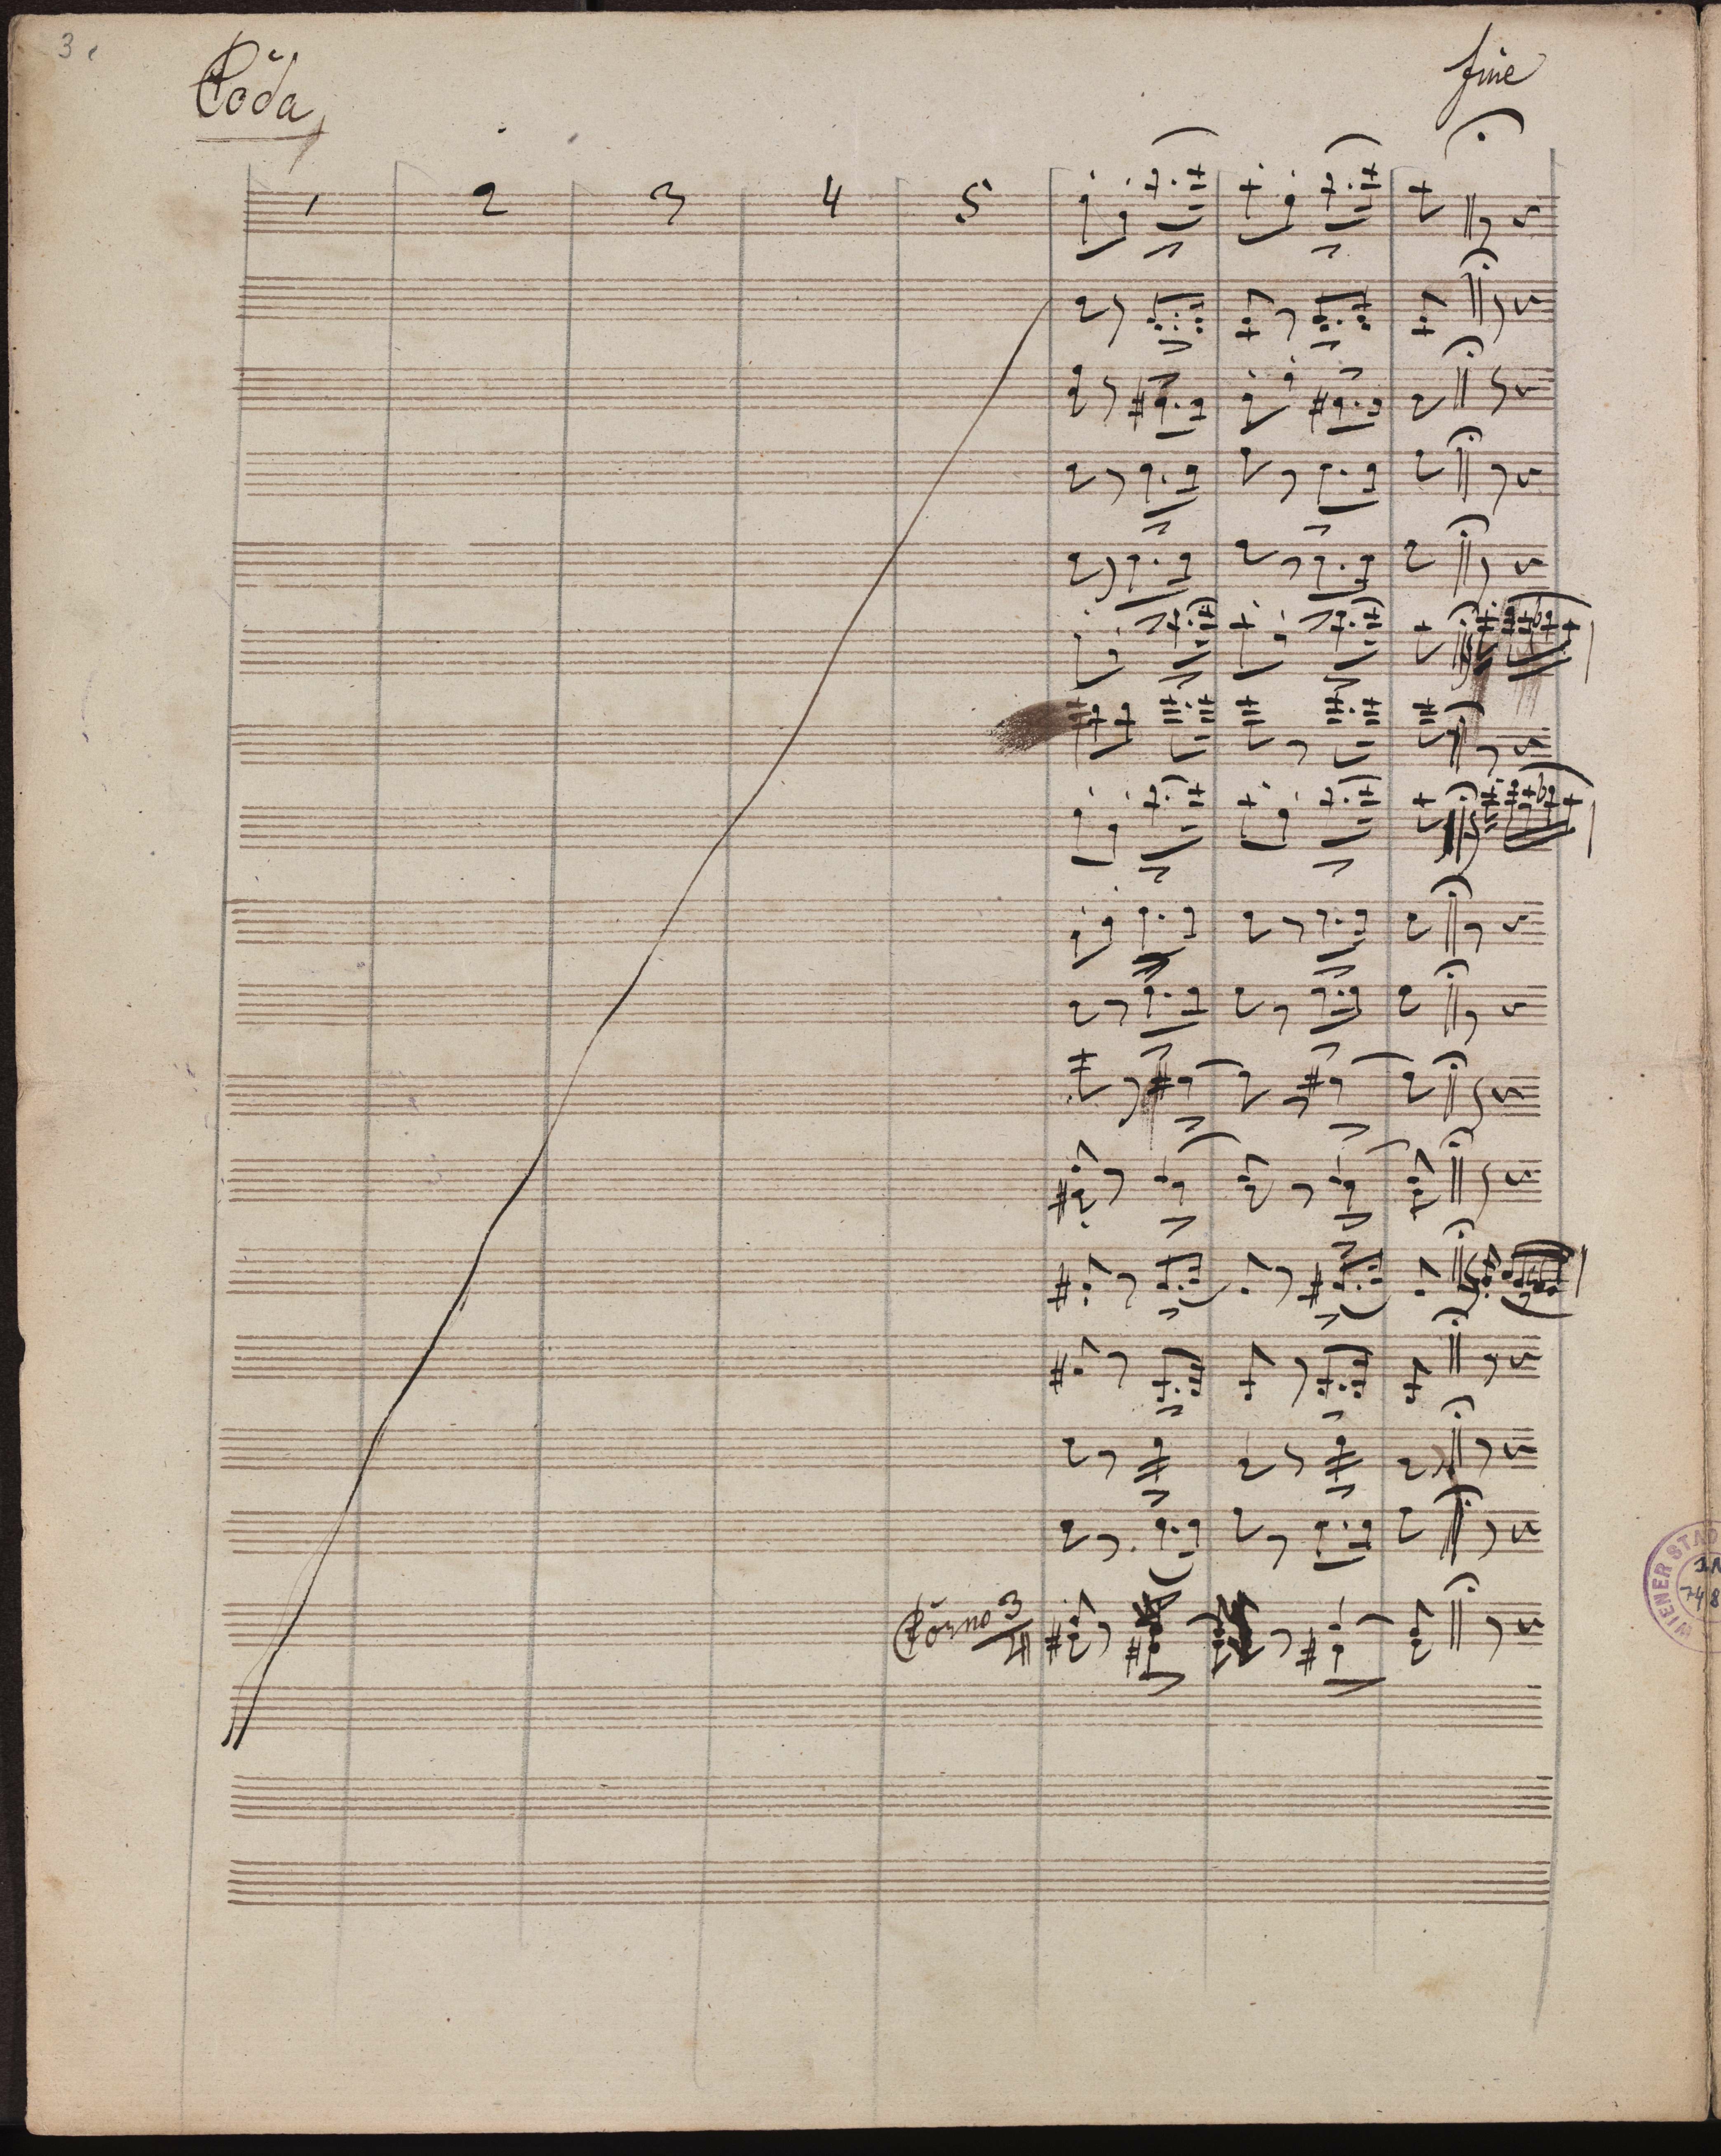 3.
Coda
fine
1 2 3 4 5
Corno 3
4
WIENER STAD
74 8